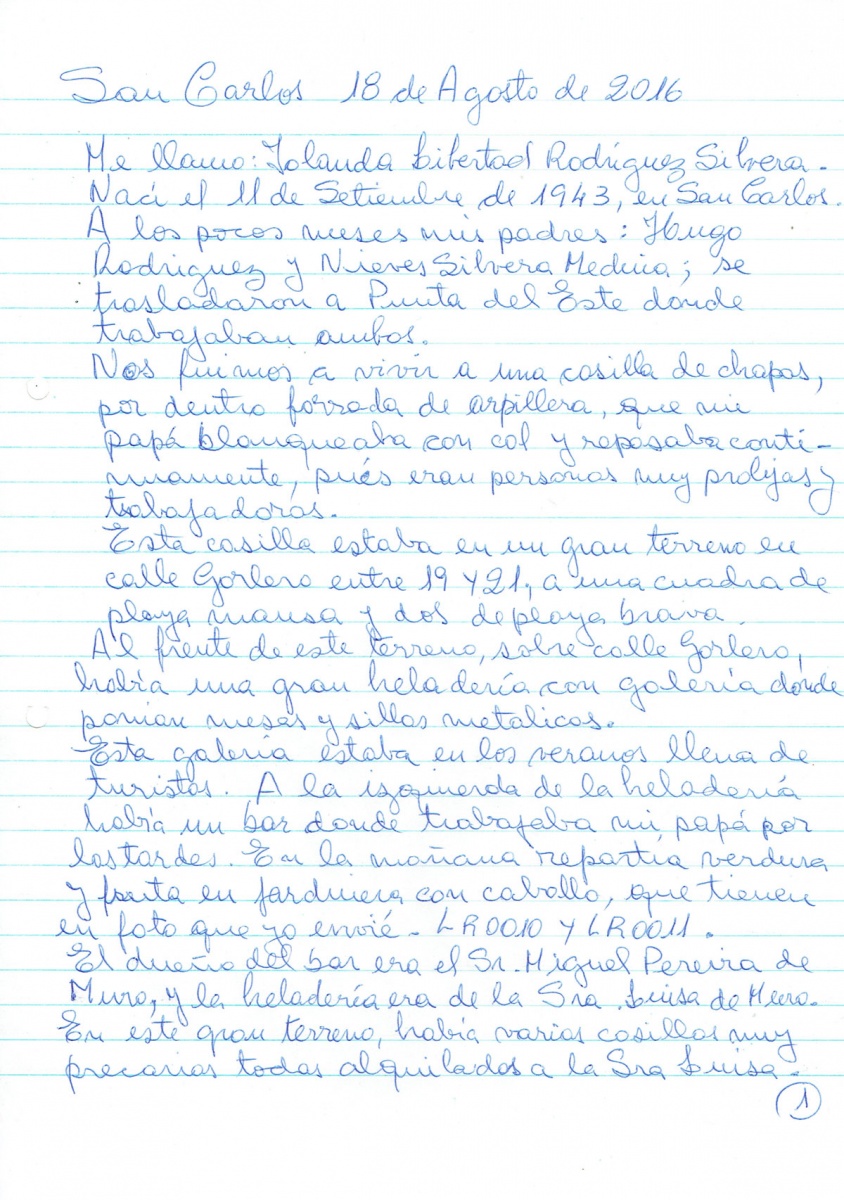 San Carlos 18 de Agosto de 2016
Me llamo: Iolanda Libertad Rodríguez Silvera.
Nací el 11 de Setiembre de 1943, en San Carlos.
A los pocos meses mis padres: Hugo
Rodriguez y Nieves Silvera Medina; se
trasladaron a Punta del Este donde
trabajaban ambos.
Nos fuimos a vivir a una casilla de chapas,
por dentro forrada de arpillera, que mi
papá blanqueaba con cal y repasaba conti-
nuamente, pués eran personas muy prolijas y
trabajadoras.
Esta casilla estaba en un gran terreno en
calle Gorlero entre 19 y 21, a una cuadra de
playa mansa y dos de playa brava.
Al frente de este terreno, sobre calle Gorlero,
había una gran heladería con galería donde
ponían mesas y sillas metalicas.
Esta galería estaba en los veranos llena de
turistas. A la izquierda de la heladería
había un bar donde trabajaba mi papá por
las tardes. En la mañana repartía verdura
y fruta en jardinera con caballo, que tienen
en foto que yo envié - LR0010 y LR0011.
El dueño del bar era el Sr. Miguel Pereira de
Muro, y la heladería era de la Sra Luisa de Muro.
En este gran terreno, había varias casillas muy
precarias todas alquiladas a la Sra Luisa.
1